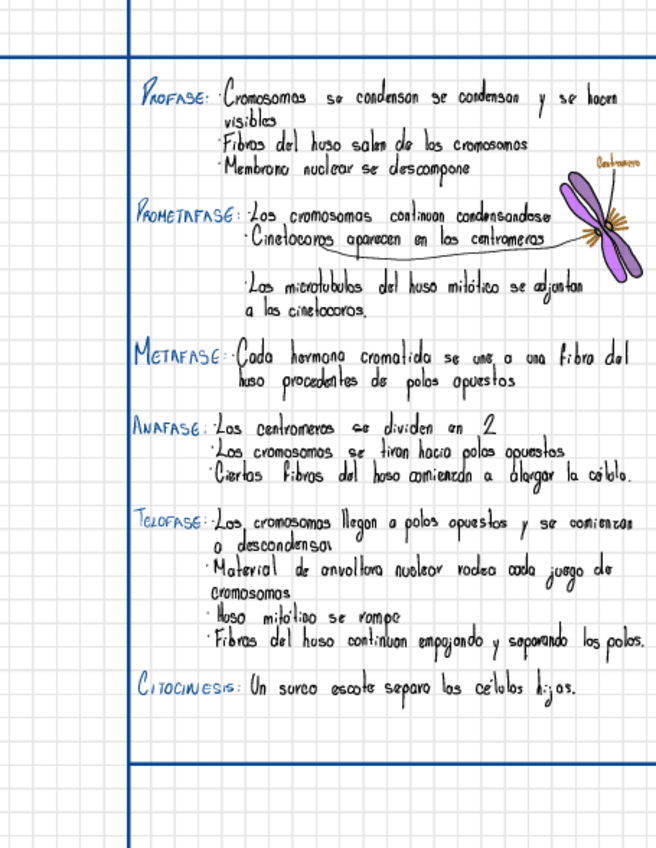 PROFASE: · Cromosomas se condensan se condensan y se hacen
visibles
· Fibras del huso salen de los cromosomas
· Membrana nuclear se descompone
Centromero
PROMETAFASE: · Los cromosomas continuan condensandose
· Cinetocoros aparecen en los centromeros
· Los microtubulos del huso mitótico se adjuntan
a los cinetocoros.
METAFASE: · Cada hermana cromatida se une a una fibra del
huso procedentes de polos opuestos
ANAFASE: · Los centromeros se dividen en 2
· Los cromosomas se tiran hacia polos opuestos
· Ciertas fibras del huso comienzan a alargar la célula.
TELOFASE: · Los cromosomas llegan a polos opuestos y se comienzan
a descondensar
· Material de envoltura nuclear rodea cada juego de
cromosomas
· Huso mitótico se rompe
· Fibras del huso continuan empujando y separando los polos.
CITOCINESIS: Un surco escote separa las células hijas.